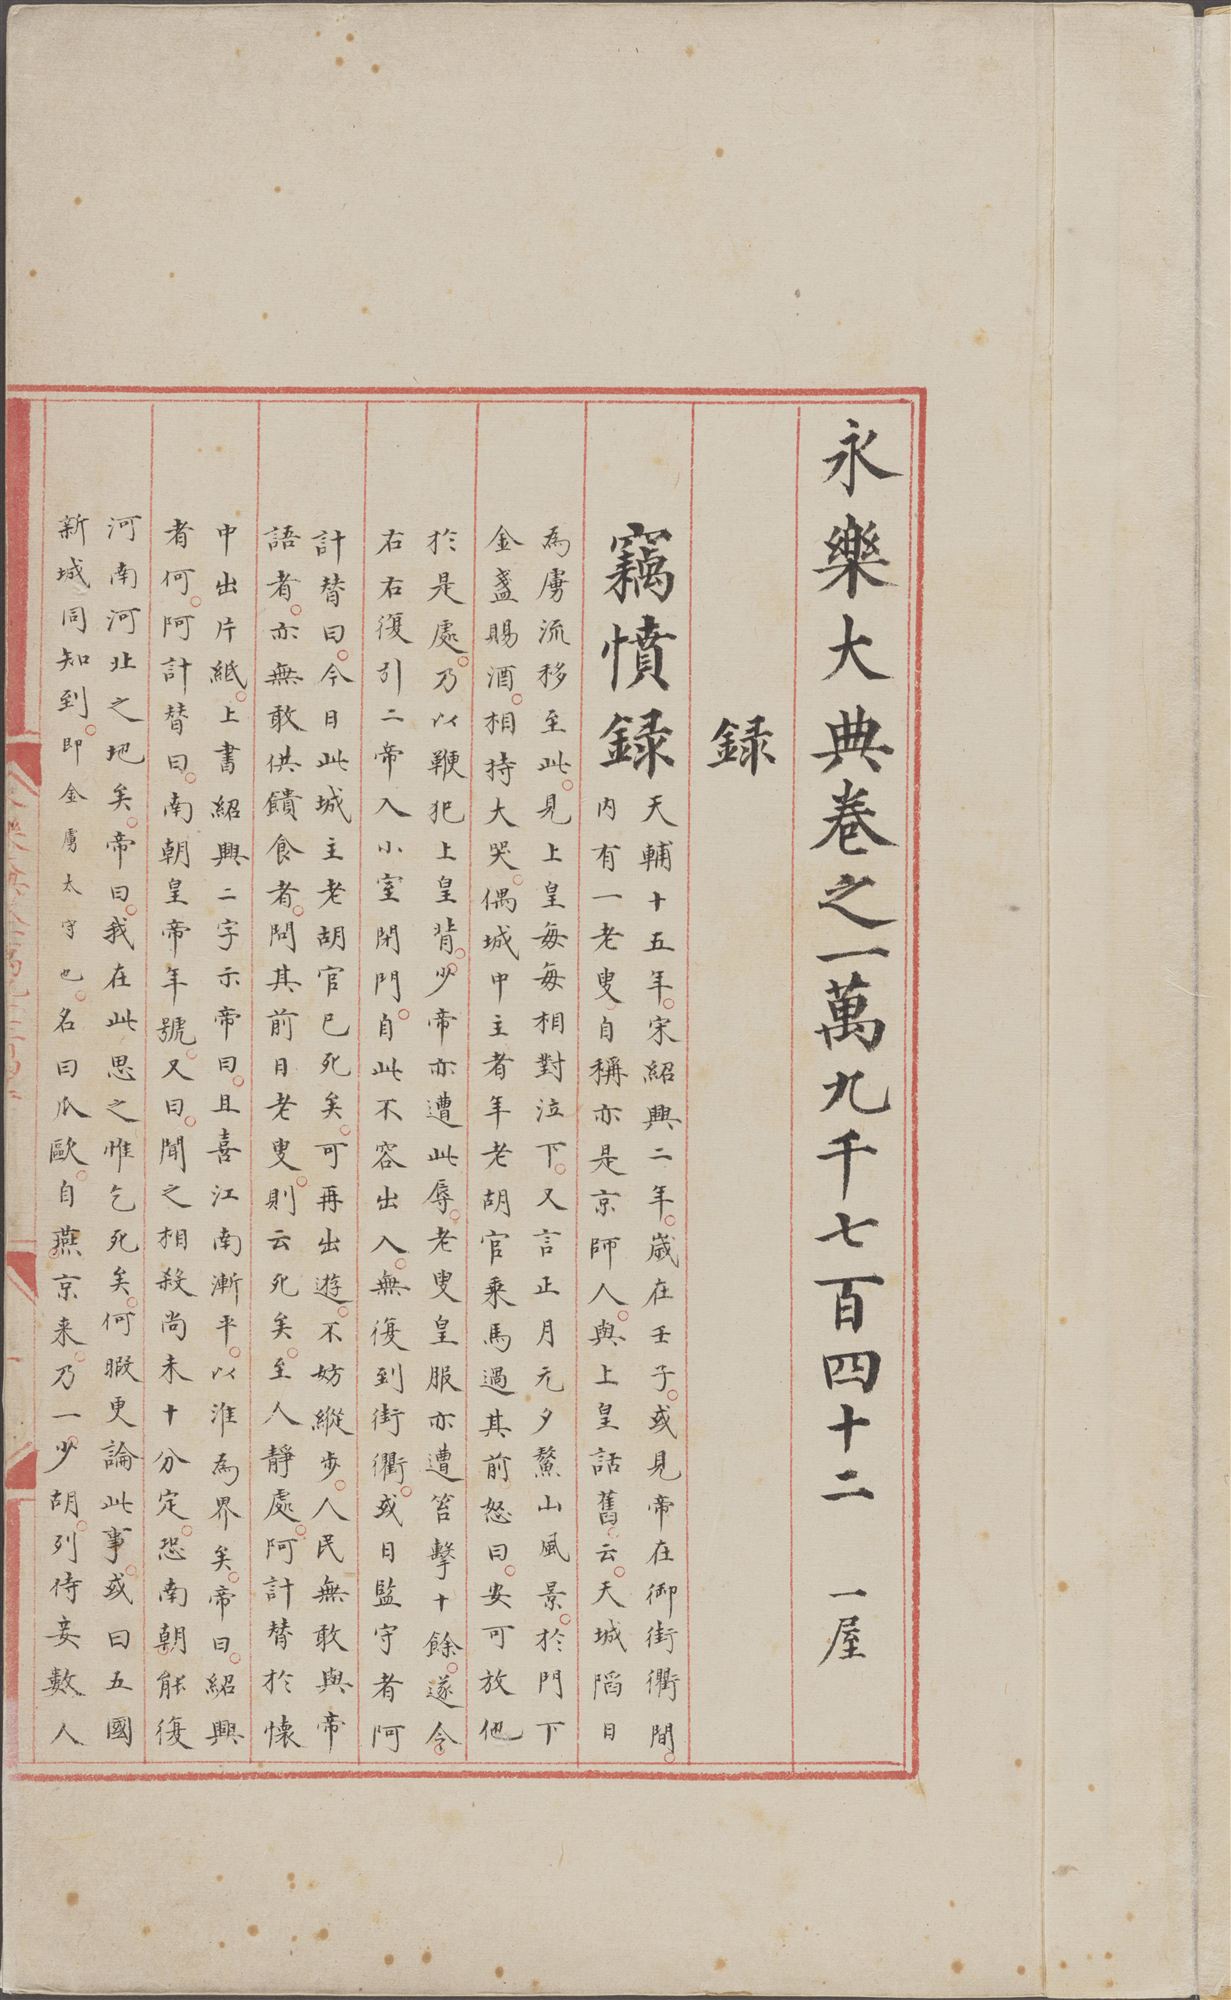 永樂大典卷之一萬九千七百四十二　一屋
録
竊憤録
天輔十五年。宋紹興二年。歲在壬子。或見帝在御街衢間。
内有一老叟。自稱亦是京師人。與上皇話舊。云。天城陷日
為虜流移至此。見上皇每每相對泣下。又言正月元夕鰲山風景。於門下
金盞賜酒。相持大哭。偶城中主者年老胡官乘馬過其前。怒曰。安可放他
於是處。乃以鞭犯上皇背。少帝亦遭此辱。老叟皇服亦遭笞擊十餘。遂令。
右右復引二帝入小室閉門。自此不容出入。無復到街衢。或日監守者阿
計替曰。今日此城主老胡官已死矣。可再出遊。不妨縱步。人民無敢與帝
語者。亦無敢供饋食者。問其前日老叟。則云死矣。至人靜處。阿計替於懷
中出片紙。上書紹興二字示帝曰。且喜江南漸平。以淮為界矣。帝曰。紹興
者何。阿計替曰。南朝皇帝年號。又曰。聞之相殺尚未十分定。恐南朝能復
河南河北之地矣。帝曰。我在此思之惟乞死矣。何暇更論此事。或曰五國
新城同知到。即金虜太守也。名曰瓜歐。自燕京来。乃一少胡。列侍妾數人